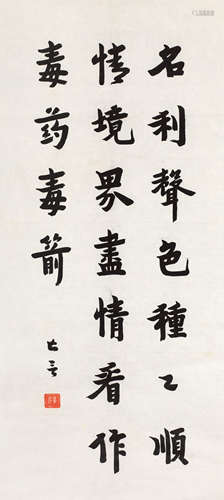 名利聲色種々順
情境界盡情看作
毒药毒箭